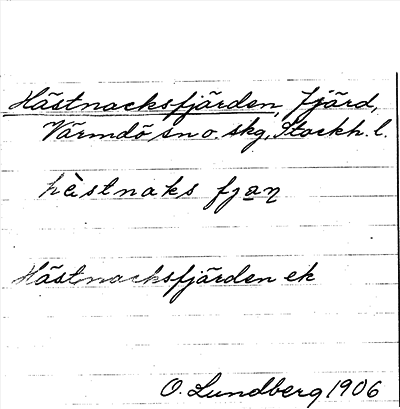 Hästnacksfjärden, fjärd,
Värmdö sn o. skg, Stockh. l.
hästnaks fjaṇ
Hästnacksfjärden ek
O. Lundberg 1906